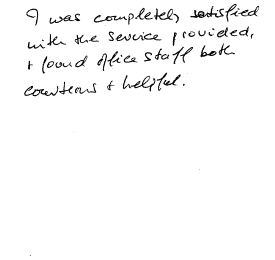 I was completely satisfied
with the service provided,
+ found office staff both
courteous + helpful.